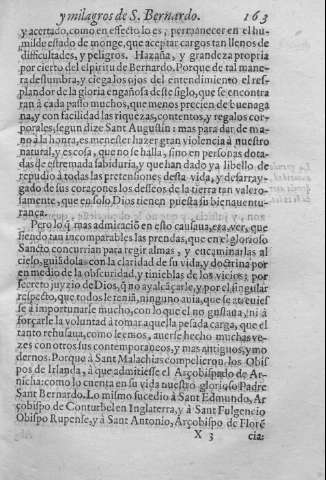 y milagros de S. Bernardo. 163
y acertado, como en effecto lo es, permanecer en el hu-
milde estado de monge, que aceptar cargos tan llenos de
difficultades, y peligros. Hazaña, y grandeza propria
por cierto del espiritu de Bernardo. Porque de tal mane-
ra deslumbra, y ciega los ojos del entendimiento el res-
plandor de la gloria engañosa de este siglo, que se encontra
ran à cada passo muchos, que menos precien de buena ga
na, y con facilidad las riquezas, contentos, y regalos cor-
porales, segun dize Sant Augustin: mas para dar de ma-
no à la honra, es menester hazer gran violencia à nuestro
natural, y es cosa, que no se halla, sino en personas dota-
das de estremada sabiduria, y que han dado ya libello de
repudio à todas las pretensiones desta vida, y desarray-
gado de sus coraçones los desseos de la tierra tan valero-
samente, que en solo Dios tienen puesta su bienauentu-
rança.
Pero lo q̃ mas admiracion en esto causaua, era, ver, que
siendo tan incomparables las prendas, que en el glorioso
Sancto concurrian para regir almas, y encaminarlas al
cielo, guiandola con la claridad de su vida, y doctrina por
en medio de la obscuridad, y tinieblas de los vicios; por
secreto juyzio de Dios, q̃ no ay alcãçarle, y por el singular
respecto, que todos le teniã, ninguno auia, que se atreuies
se à importunarle mucho, con lo que el no gustaua, ni à
forçarle la voluntad à tomar aquella pesada carga, que el
tanto rehusaua, como leemos, auerse hecho muchas ve-
zes con otros sus contemporaneos, y mas antiguos, y mo
dernos. Porque à Sant Malachias compelieron los Obis
pos de Irlanda, à que admitiesse el Arçobispado de Ar-
nicha: como lo cuenta en su vida nuestro glorioso Padre
Sant Bernardo. Lo mismo sucedio à Sant Edmundo, Ar
çobispo de Conturbel en Inglaterra, y à Sant Fulgencio
Obispo Rupense, y à Sant Antonio, Arçobispo de Florẽ
X 3 cia: